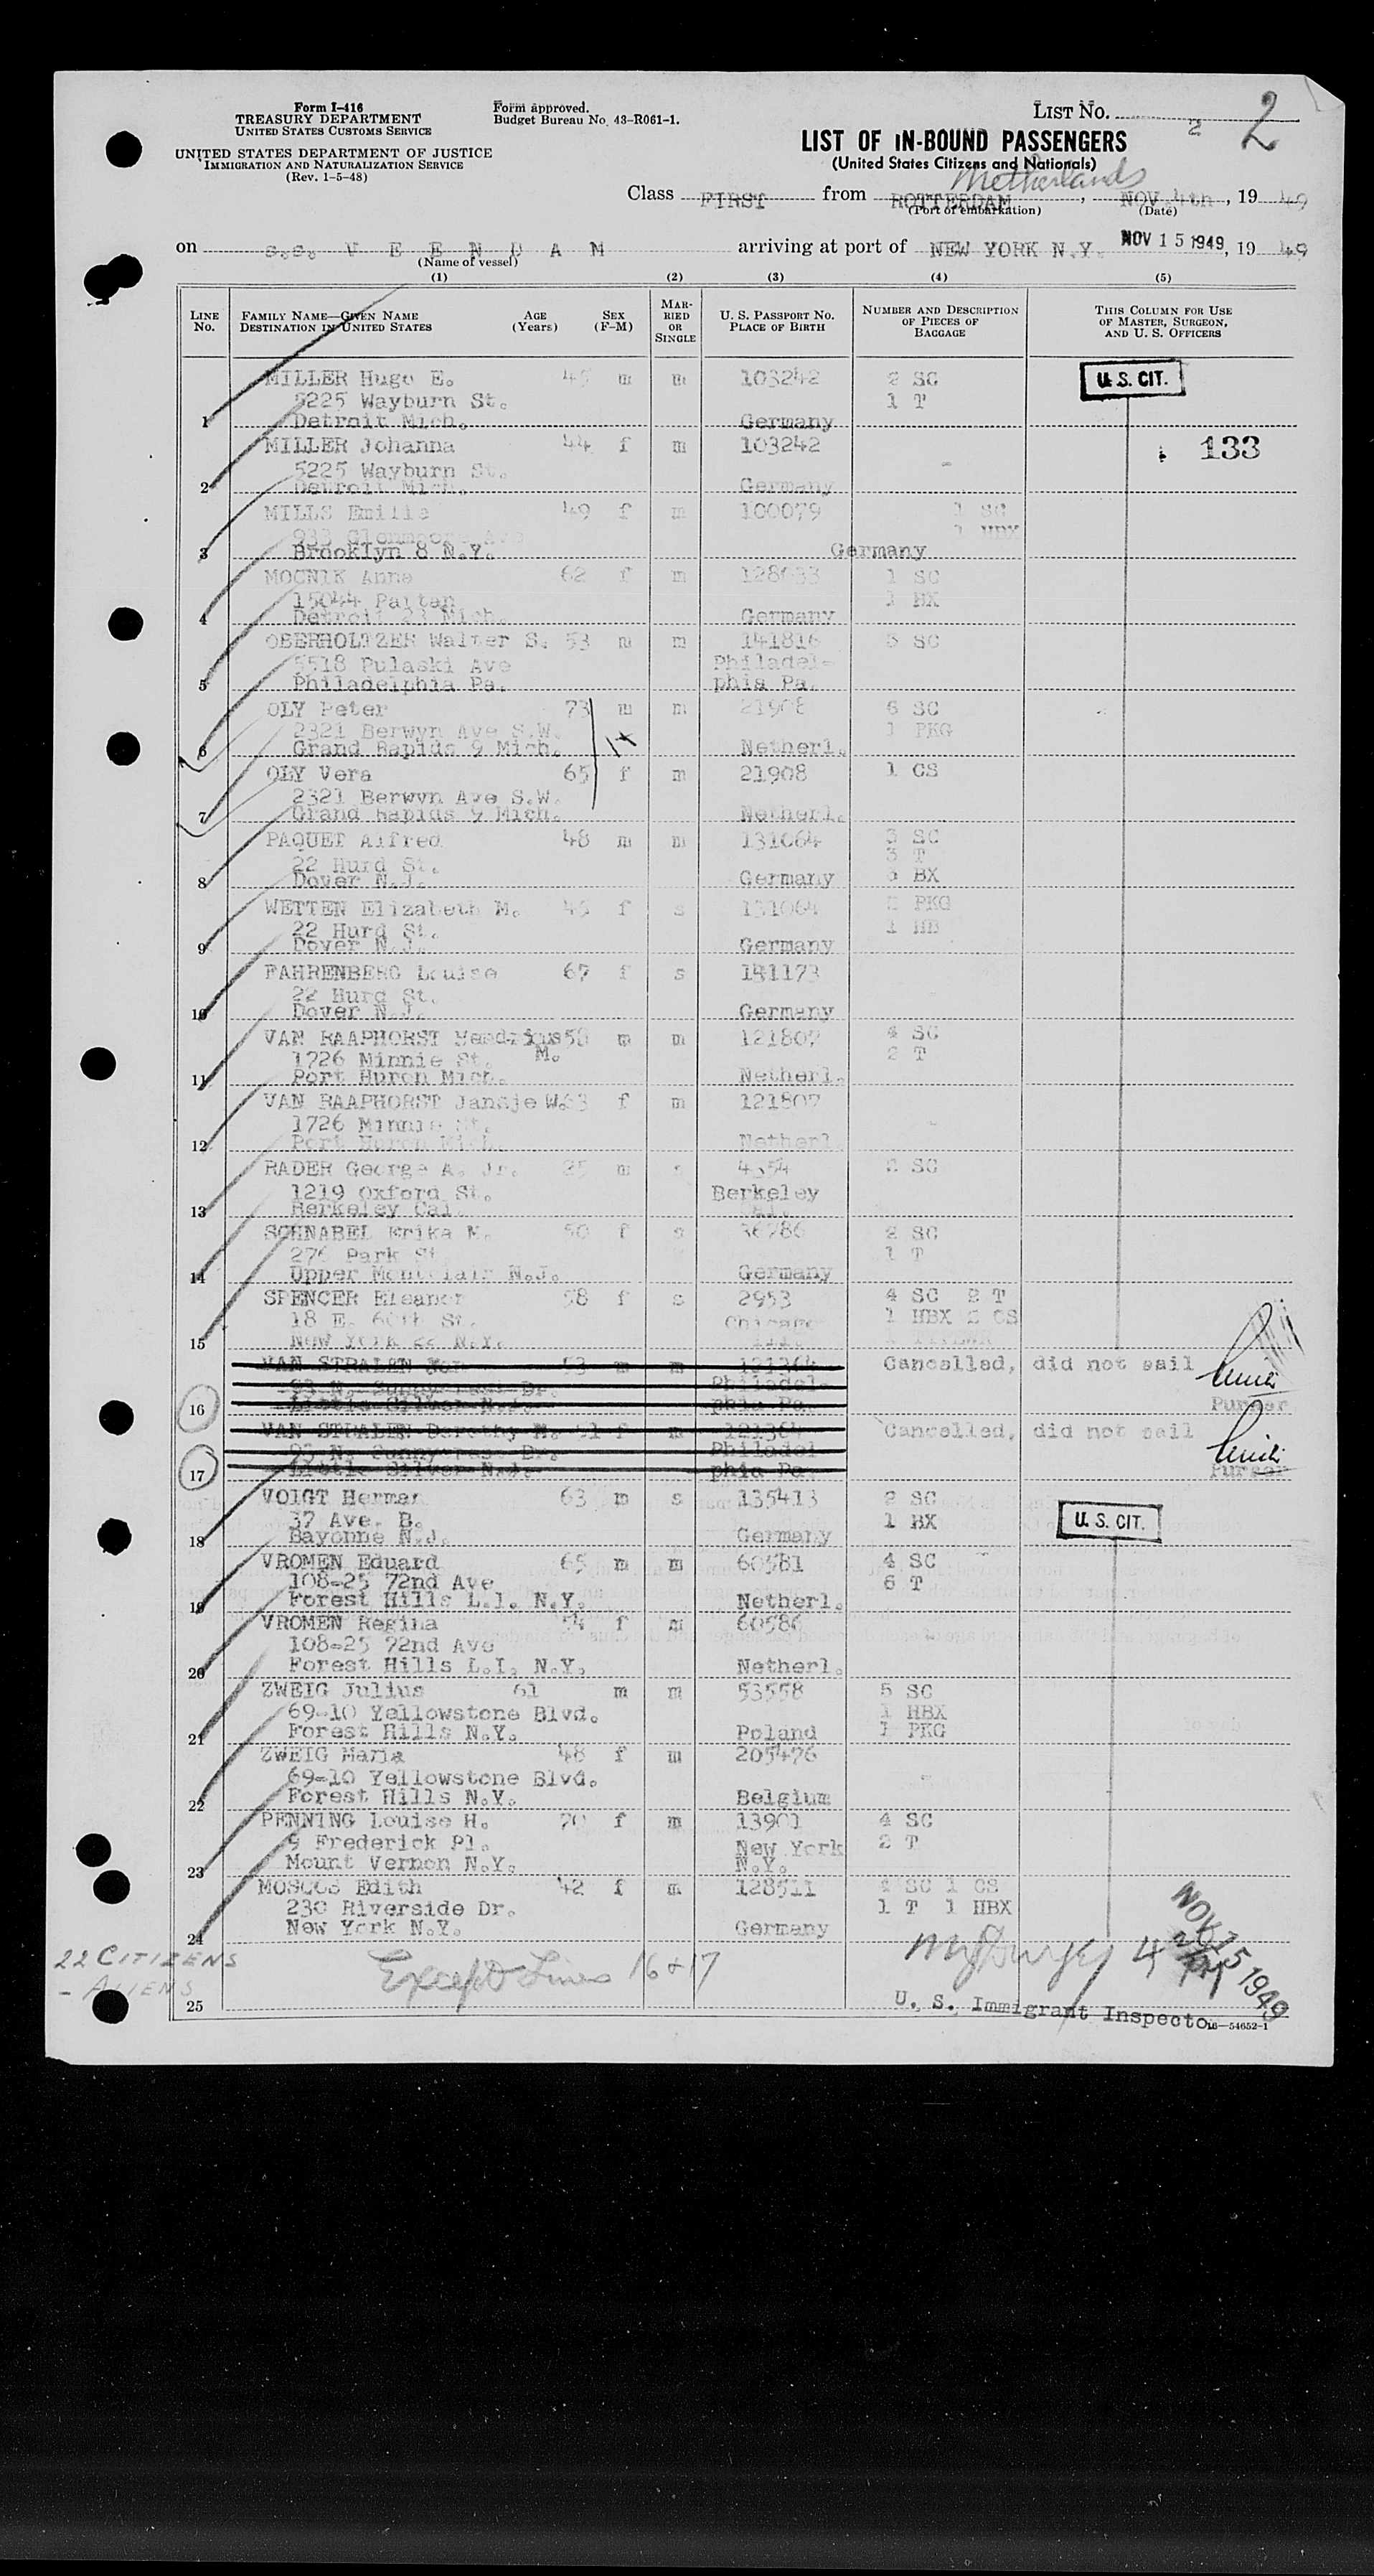 Form I-416
TREASURY DEPARTMENT
UNITED STATES CUSTOMS SERVICE
UNITED STATES DEPARTMENT OF JUSTICE
IMMIGRATION AND NATURALIZATION SERVICE
(Rev. 1-5-48)
Form approved.
Budget Bureau No. 43-R061-1.
LIST NO. 2
2
LIST OF IN-BOUND PASSENGERS
(United States Citizens and Nationals)
Netherlands
Class FIRST from ROTTERDAM, NOV. 4th, 19 49
(Port of embarkation) (Date)
on s.s. V E E N D A M arriving at port of NEW YORK N.Y. NOV 15 1949, 19 49
(Name of vessel)
(1) (2) (3) (4) (5)
LINE NO. FAMILY NAME—GIVEN NAME DESTINATION IN UNITED STATES AGE (Years) SEX (F-M) MARRIED OR SINGLE U. S. PASSPORT NO. PLACE OF BIRTH NUMBER AND DESCRIPTION OF PIECES OF BAGGAGE THIS COLUMN FOR USE OF MASTER, SURGEON, AND U. S. OFFICERS
MILLER Hugo E. 45 m m 103242 2 SC U. S. CIT.
5225 Wayburn St. 1 T
1 Detroit Mich. Germany
MILLER Johanna 44 f m 103242 - 133
5225 Wayburn St.
2 Detroit Mich. Germany
MILLS Emilie 49 f m 100079 1 SC
933 Ave 1 HBX
3 Brooklyn 8 N.Y. Germany
MOCNIK Anna 62 f m 128633 1 SC
15044 1 BX
4 Detroit 23 Mich. Germany
OBERHOLTZER Walter S. 53 m m 141816 5 SC
5518 Pulaski Ave Philadel-
5 Philadelphia Pa. phia Pa.
OLY Peter 73 m m 21908 6 SC
2321 Berwyn Ave S.W. 1 PKG
6 Grand Rapids 9 Mich. Netherl.
OLY Vera 65 f m 21908 1 CS
2321 Berwyn Ave S.W.
7 Grand Rapids 9 Mich. Netherl.
PAQUET Alfred 48 m m 131064 3 SC
22 Hurd St. 3 T
8 Dover N.J. Germany BX
WETTEN Elizabeth M. 45 f s 131064 PKG
22 Hurd St. 1 HB
9 Dover N.J. Germany
FAHRENBERG Louise 67 f s 141173
22 Hurd St.
10 Dover N.J. Germany
VAN RAAPHORST 58 m m 121807 4 SC
1726 Minnie St. M. 2 T
11 Port Huron Mich. Netherl.
VAN RAAPHORST Jansje W. 63 f m 121807
1726 Minnie St. -
12 Port Huron Mich. Netherl.
RADER George A. Jr. 25 m s 4354 2 SC
1219 Oxford St. Berkeley
13 Berkeley Cal. Cal.
SCHNABEL Erika M. 50 f s 36786 2 SC
276 Park St 1 T
14 Upper Montclair N.J. Germany
SPENCER Eleanor 58 f s 2953 4 SC 2 T
18 E. 60th St. Chicago 1 HBX 2 CS
15 New York 22 N.Y. Ill.
VAN STRALEN 53 m m 121364 Cancelled, did not sail
93 N. Sunnycrest Dr. Philadel-
16 Little Silver N.J. phia Pa. Purser
VAN STRALEN Dorothy M. 51 f m 121364 Cancelled, did not sail
93 N. Sunnycrest Dr. Philadel
17 Little Silver N.J. phia Pa Purser
VOIGT Herman 63 m s 135413 2 SC
37 Ave. B. 1 BX U. S. CIT.
18 Bayonne N.J. Germany
VROMEN Eduard 65 m m 60581 4 SC
108-25 72nd Ave 6 T
19 Forest Hills L.I. N.Y. Netherl.
VROMEN Regina 54 f m 60586
108-25 72nd Ave -
20 Forest Hills L.I. N.Y. Netherl.
ZWEIG Julius 61 m m 53558 5 SC
69-10 Yellowstone Blvd. 1 HBX
21 Forest Hills N.Y. Poland 1 PKG
ZWEIG Maria 48 f m 205476
69-10 Yellowstone Blvd. -
22 Forest Hills N.Y. Belgium
PENNING Louise H. 70 f m 13901 4 SC
9 Frederick Pl. New York 2 T
23 Mount Vernon N.Y. N.Y.
MOSCOS Edith 42 f m 128511 SC 1 CS
230 Riverside Dr. 1 T 1 HBX
24 New York N.Y. Germany
22 CITIZENS
- ALIENS
Except Lines 16 & 17
NOV 15 1949
25
U. S. Immigrant Inspector
16—54652-1